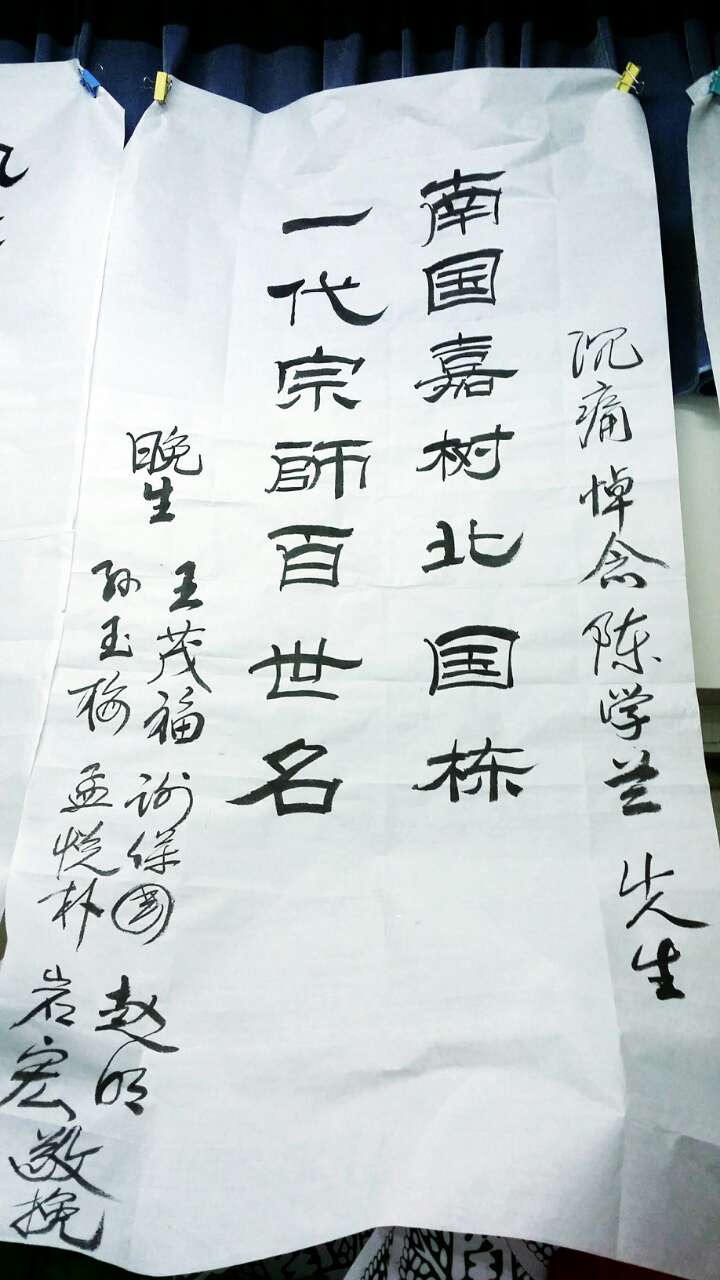 沉痛悼念陈学兰先生
南国嘉树北国栋
一代宗師百世名
晚生
王茂福 谢保国 赵明
孙玉梅 孟悦朴 岩宏 敬挽